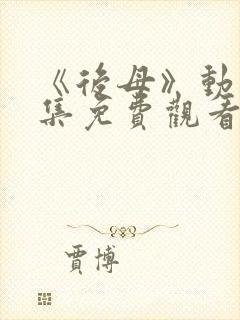 《後母》動
集免費觀看
賈博